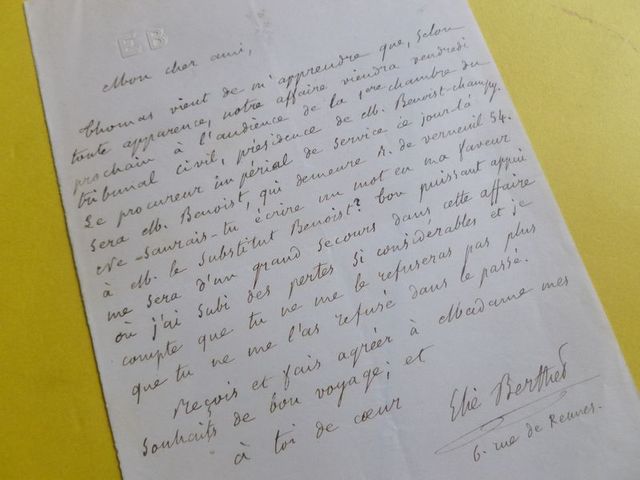 EB
Mon cher ami,
Thomas vient de m'apprendre que, selon
toute apparence, notre affaire viendra vendredi
prochain à l'audience de la 1ere chambre du
tribunal civil, présidence de M. Benoist-champy.
Le procureur impérial de service ce jour-là
sera M. Benoist, qui demeure R. de verneuil 54.
Ne saurais-tu écrire un mot en ma faveur
à M. le substitut Benoist? Ton puissant appui
me sera d'un grand secours dans cette affaire
où j'ai subi des pertes si considérables et je
compte que tu ne me le refuseras pas plus
que tu ne me l'as refusé dans le passé.
Reçois et fais agréer à Madame mes
souhaits de bon voyage; et
à toi de cœur
Elie Berthet
6. rue de Rennes.